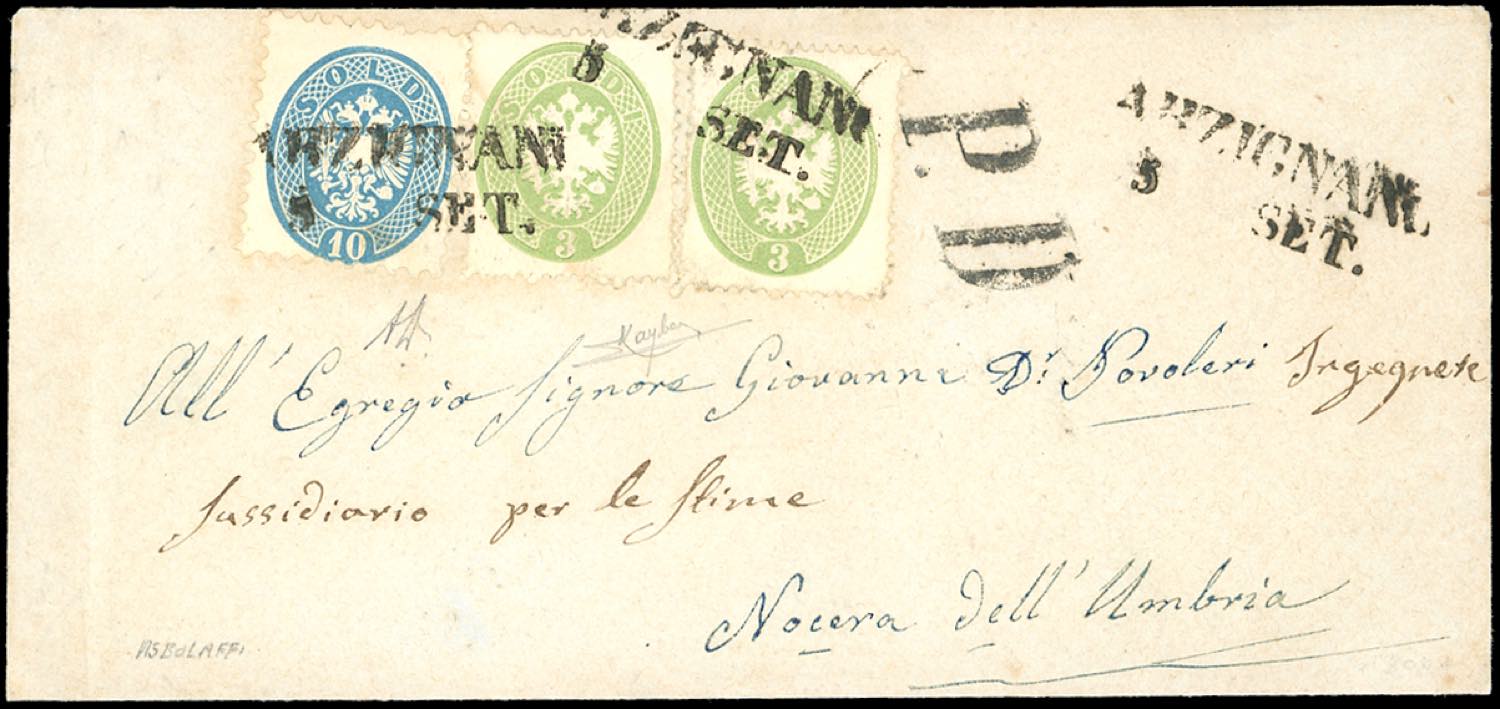 SOLDI SOLDI SOLDI
10 3 3
ARZIGNANO
5 SET.
ARZIGNANO
5 SET.
P.D.
ARZIGNANO
5 SET.
All' Egregio Signore Giovanni Dr Povoleri Ingegnere
sussidiario per le stime
Nocera dell' Umbria